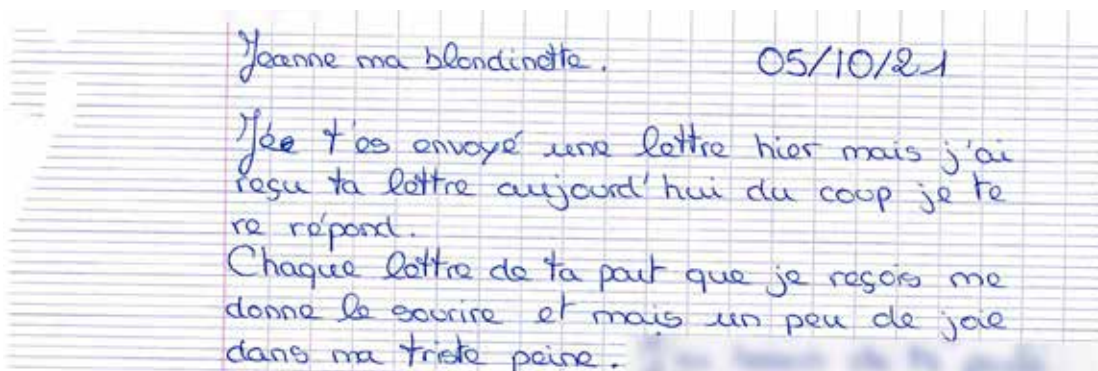 Jeanne ma blondinette. 05/10/21
Je t'es envoyé une lettre hier mais j'ai
reçu ta lettre aujourd'hui du coup je te
re répond.
Chaque lettre de ta part que je reçois me
donne le sourire et mais un peu de joie
dans ma triste peine.